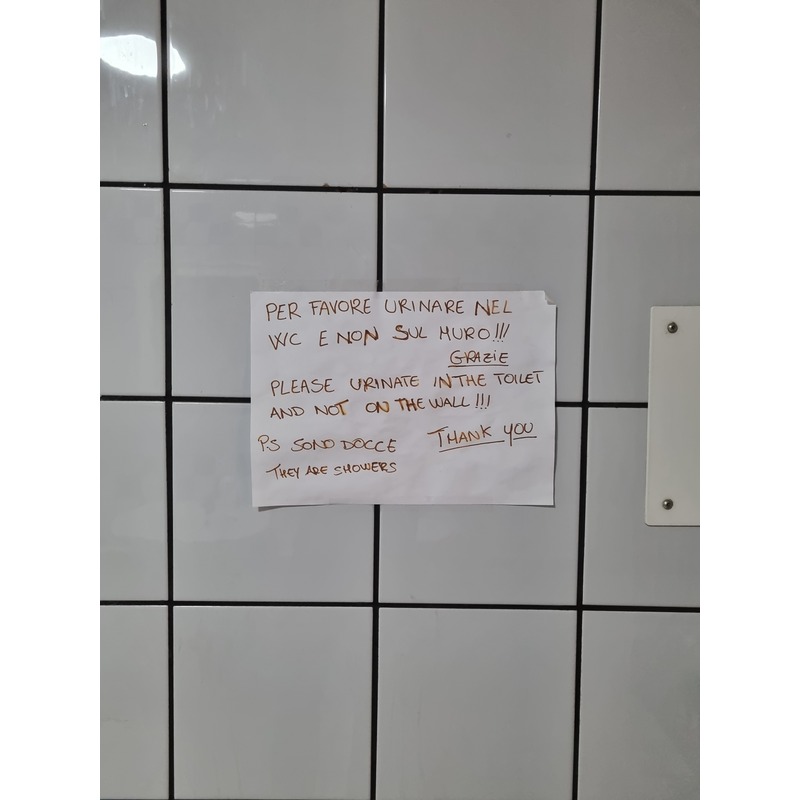 PER FAVORE URINARE NEL
WC E NON SUL MURO!!!
GRAZIE
PLEASE URINATE IN THE TOILET
AND NOT ON THE WALL!!!
P.S SONO DOCCE
THEY ARE SHOWERS
THANK YOU